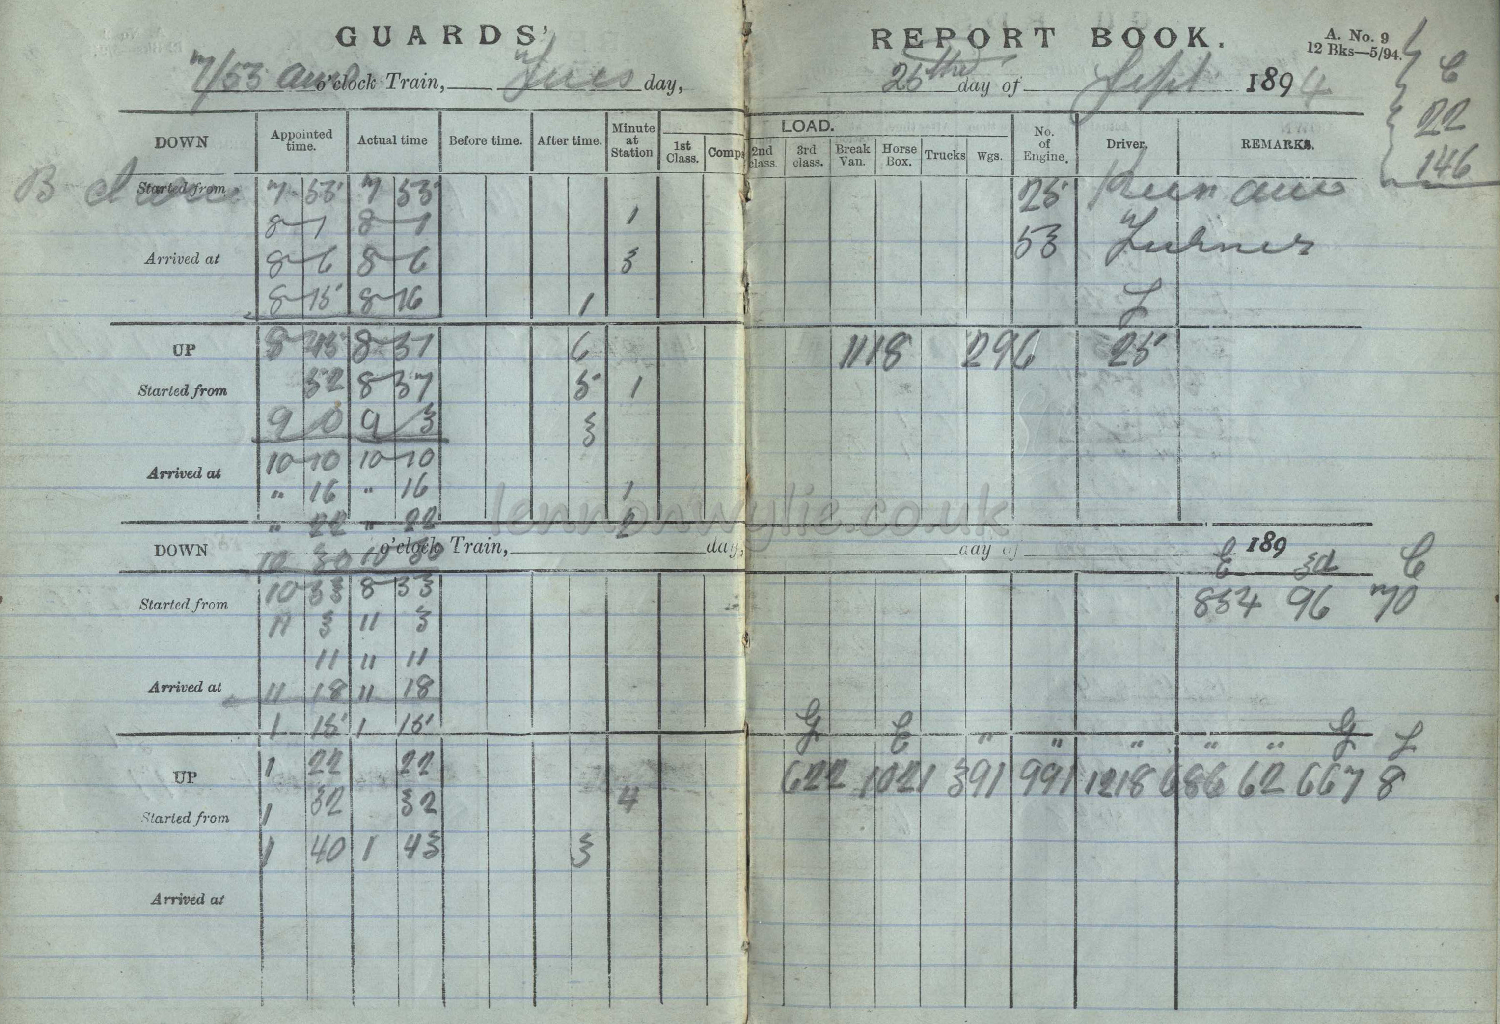 GUARDS' REPORT BOOK.
A. No. 9
12 Bks—5/94.
7/53 am o'clock Train, Tues day, 25th day of Sept 1894
C
22
146
DOWN Appointed time. Actual time Before time. After time. Minute at Station 1st Class. Comp. LOAD. 2nd class. 3rd class. Break Van. Horse Box. Trucks Wgs. No. of Engine. Driver. REMARKS.
Started from 7-53 7 53 25
8-1 8-1 1 53 Turner
Arrived at 8-6 8-6 3
8-15 8-16 1
UP 8-31 6 1118 296 25
Started from 32 8 37 5 1
9 0 9 3 3
10-10 10-10
Arrived at
" 16 " 16 1
" 22 " 22 2
DOWN o'clock Train, day, day of 189
10 30 10 30 3d C
Started from 10 33 8-33 834 96 70
11 3 11 3
11 11 11
Arrived at 11 18 11 18
1 15 1 15
" " " " "
UP 1 22 22 622 1021 391 991 1218 686 62 667 8
Started from 1 32 32 4
1 40 1 43 3
Arrived at
lennonwylie.co.uk